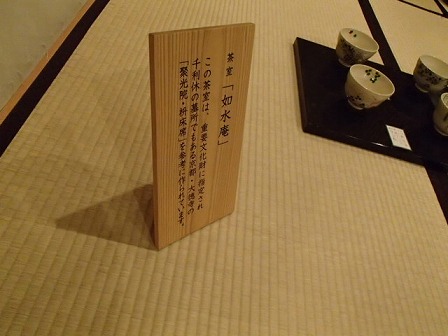 茶室「如水庵」
この茶室は、重要文化財に指定され
千利休の墓所でもある京都・大徳寺の
「聚光院・枡床席」を参考に作られています。